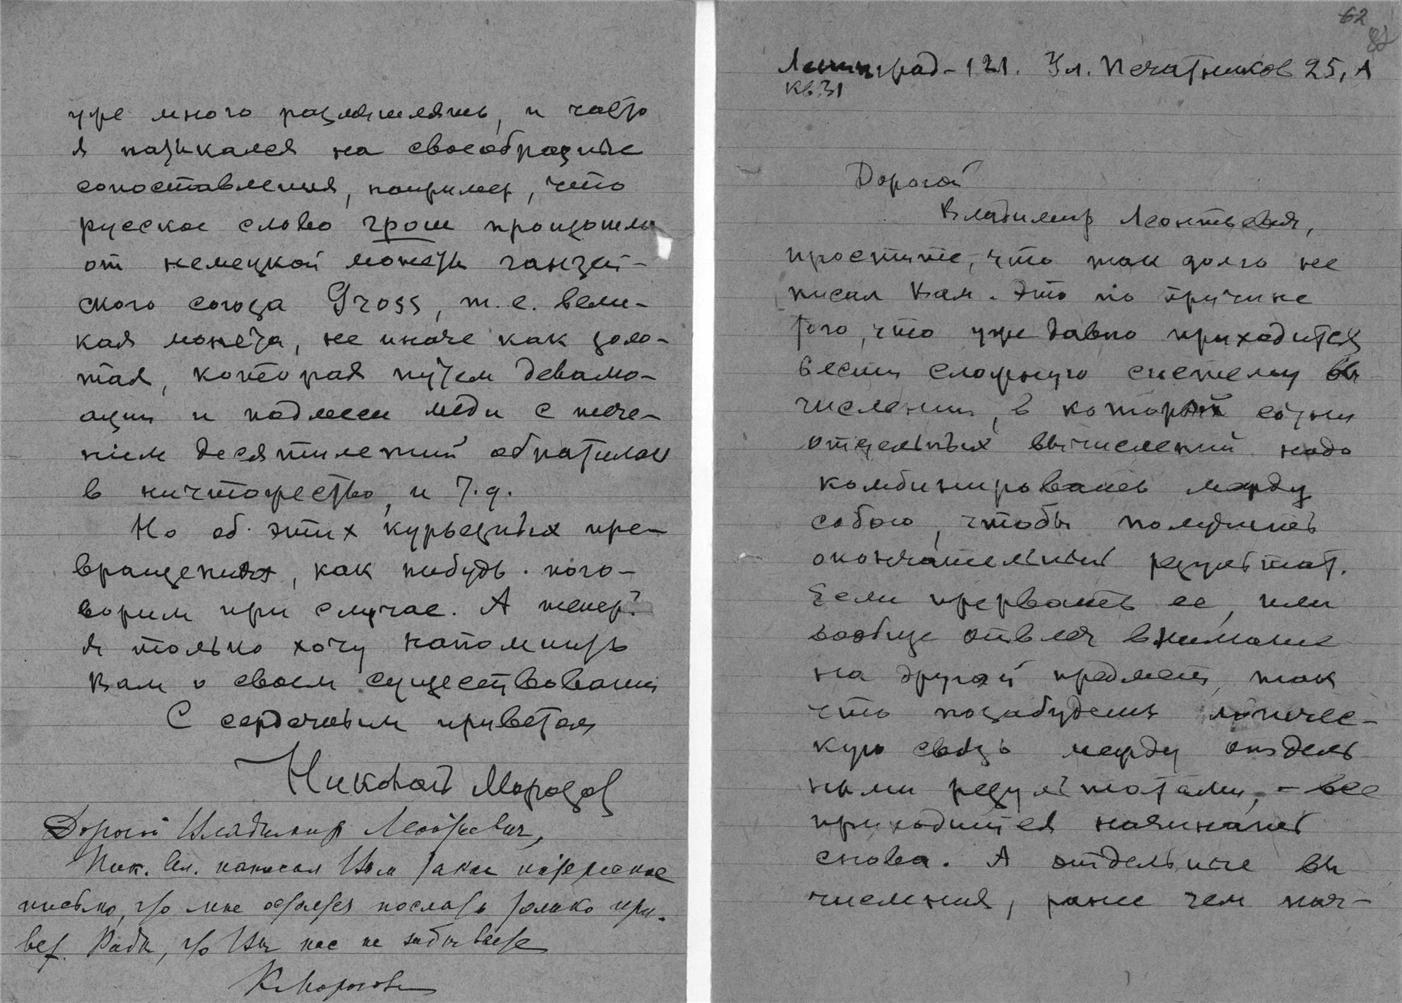 62
Ленинград-121. Ул. Печатников 25, А
кв 31
Дорогой
Владимир Леонтьевич,
простите, что так долго не
писал Вам. Это по причине
того, что уже давно приходится
вести сложную систему вы
числений, в которой сотни
отдельных вычислений надо
комбинировать между
собою, чтобы получить
окончательный результат.
Если прервать ее, или
вообще отвлеч внимание
на другой предмет, так
что позабудешь логичес-
кую связь между отдель
ными результатами, - все
приходится начинать
снова. А отдельные вы
числения, ранее чем нач-
уже много размышлять, и часто
я натыкался на своеобразные
сопоставления, например, что
русское слово грош произошло
от немецкой монеты ганзей-
ского союза Gross, т. е. вели-
кая монета, не иначе как золо-
тая, которая путем девальв-
ации и подмеси меди с тече-
нием десятилетий обратилась
в ничтожество, и т.д.
Но об этих курьезных пре-
вращениях, как нибудь пого-
ворим при случае. А теперь
я только хочу напомнить
Вам о своем существовании
С сердечным приветом
Николай Морозов
Дорогой Владимир Леонтьевич,
Ник. Ал. написал Вам такое
письмо, что мне остается послать только при-
вет. Рада, что Вы нас не забываете
К. Морозова